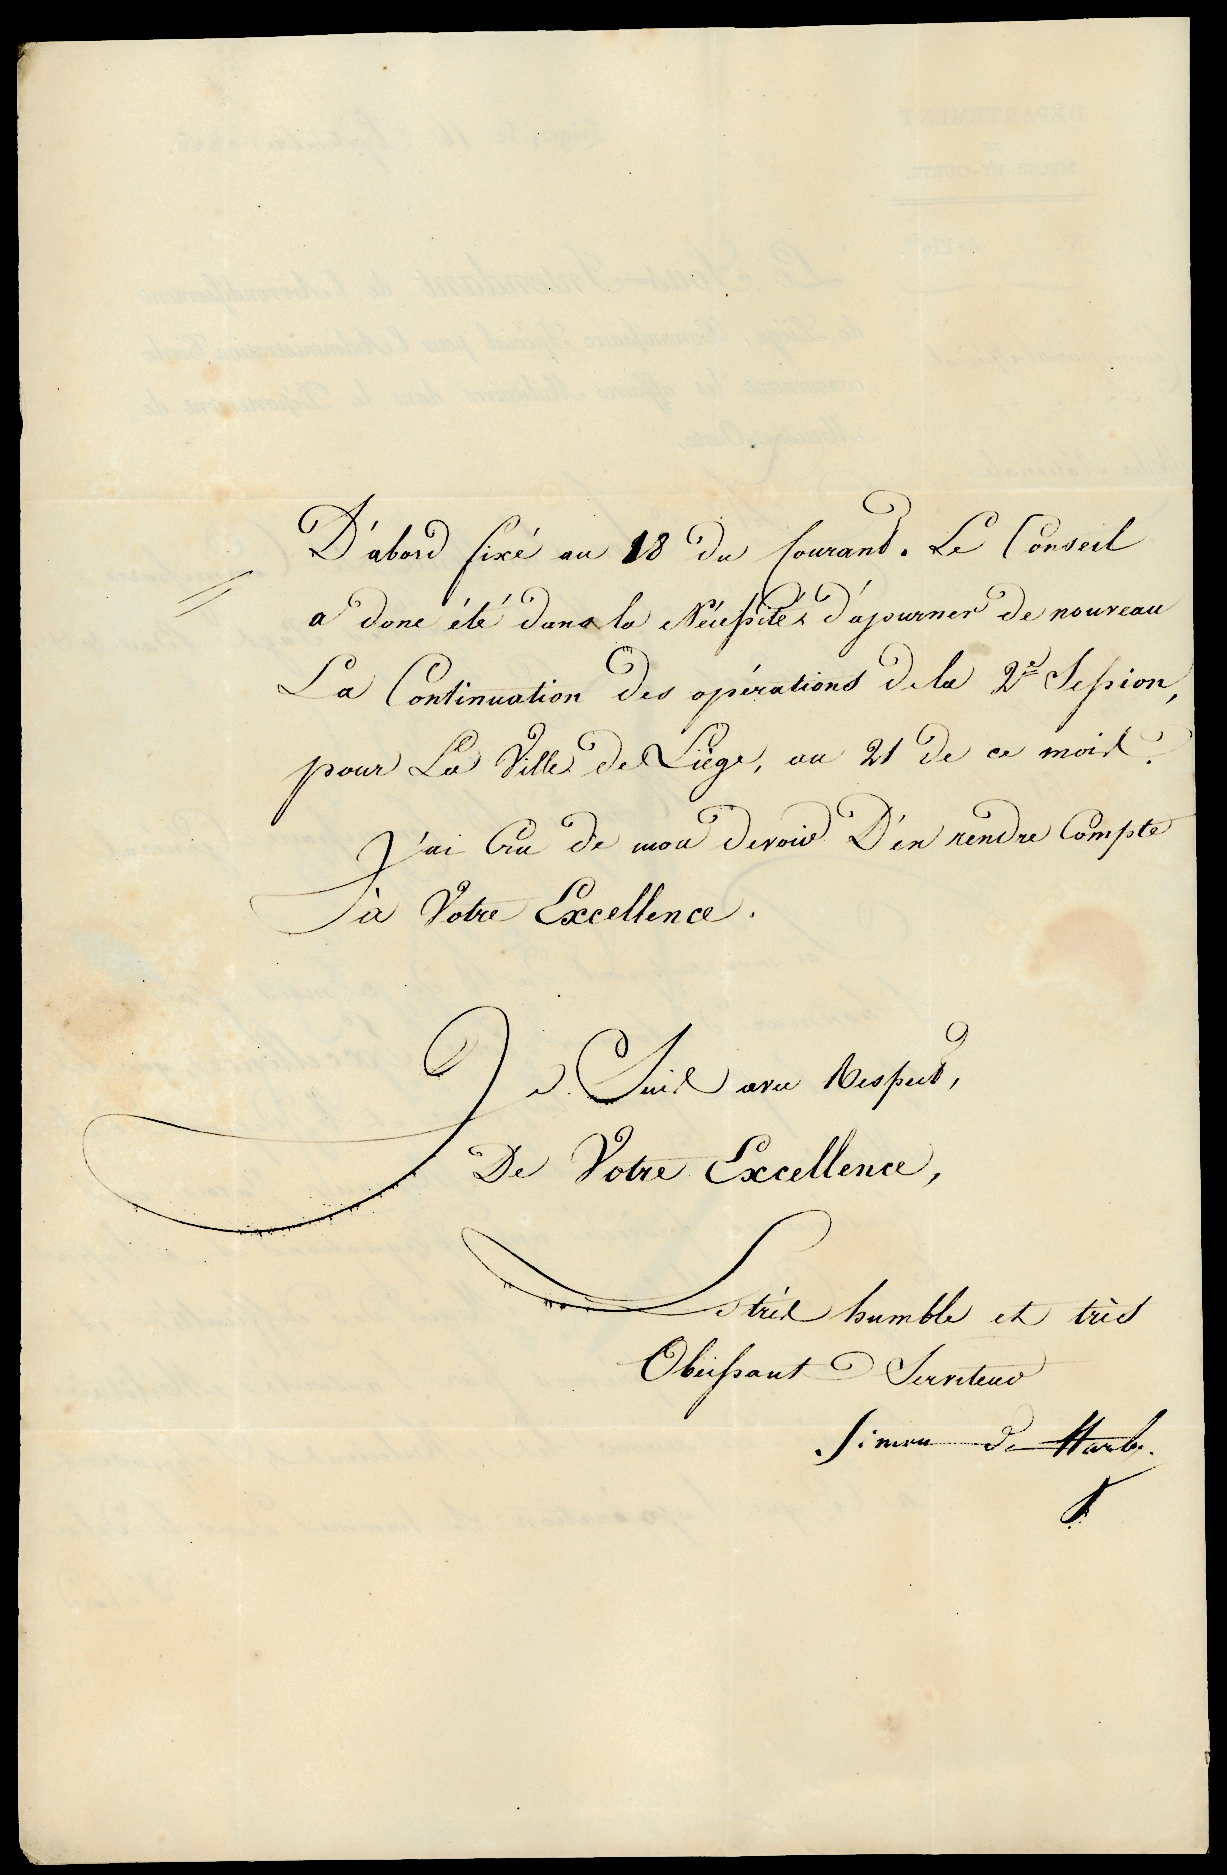 D'abord fixé au 18 du Courant. Le Conseil
a donc été dans la Nécessité d'ajourner de nouveau
La Continuation des opérations de la 2e Session,
pour La Ville de Liège, au 21 de ce mois.
J'ai Cru de mon devoir D'en rendre Compte
à Votre Excellence.
Je Suis avec Respect,
De Votre Excellence,
Le très humble et très
Obéissant Serviteur
Simon de Harlez.